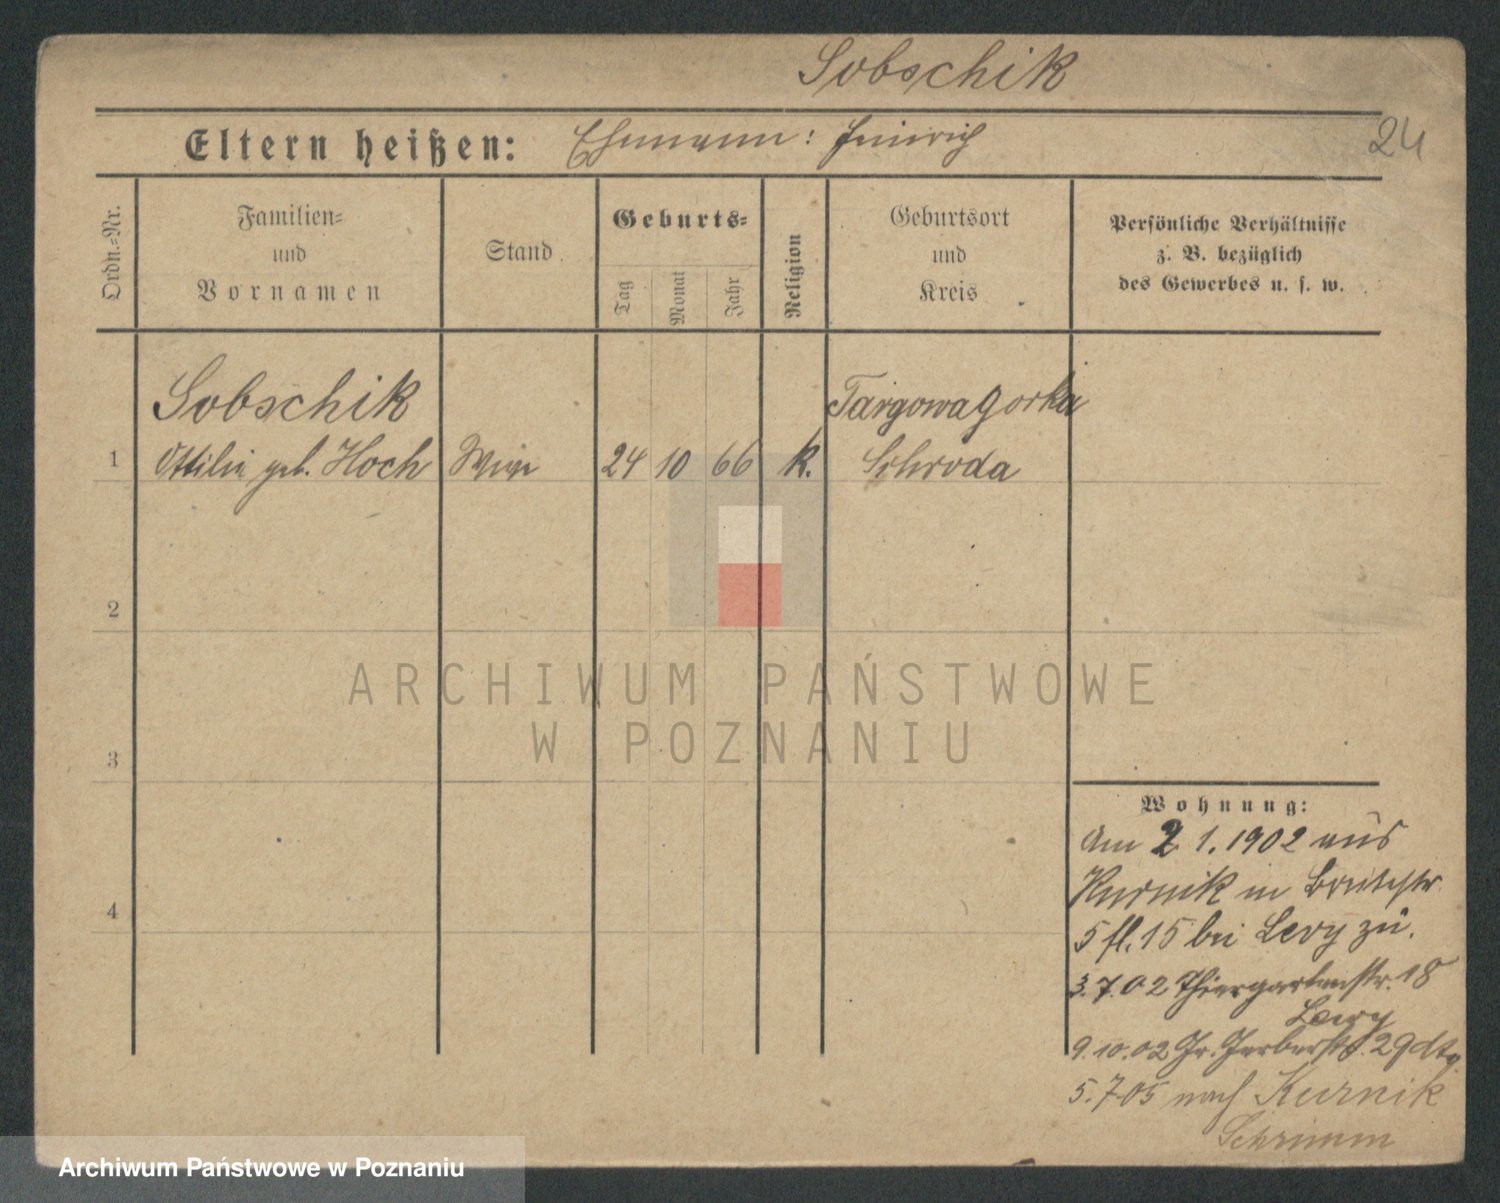 Sobschik
Eltern heißen: Ehemann: Heinrich
24
Ordn.=Nr.
Familien=
und
Vornamen
Stand
Geburts=
Tag
Monat
Jahr
Religion
Geburtsort
und
Kreis
Persönliche Verhältnisse
z. B. bezüglich
des Gewerbes u. s. w.
Sobschik Targowagorka
1 Ottilie geb. Hoch 24 10 66 k. Schroda
2
ARCHIWUM PAŃSTWOWE
W POZNANIU
3
Wohnung:
Am 2 1. 1902 aus
Kurnik in Breitestr
5 fl. 15 bei Levy zu.
4
3.7.02 Thiergartenstr. 18
Levy
9.10.02 Gr. Gerberstr. 29
5.7.05 nach Kurnik
Schrimm
Archiwum Państwowe w Poznaniu